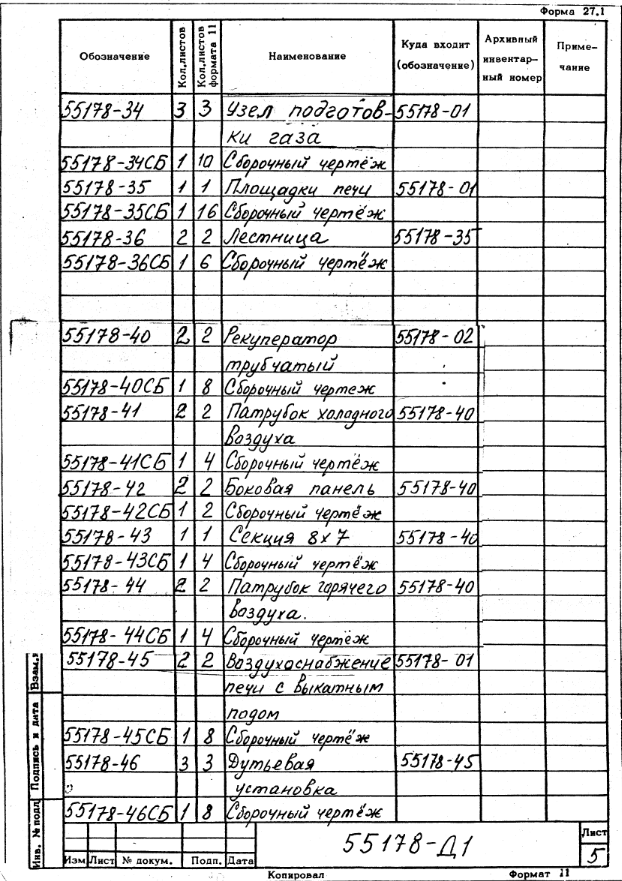 Форма 27.1
Обозначение Кол.листов Кол.листов формата 11 Наименование Куда входит (обозначение) Архивный инвентар-ный номер Приме-чание
55178-34 3 3 Узел подготов- 55178-01
ки газа
55178-34СБ 1 10 Сборочный чертёж
55178-35 1 1 Площадки печи 55178-01
55178-35СБ 1 16 Сборочный чертёж
55178-36 2 2 Лестница 55178-35
55178-36СБ 1 6 Сборочный чертёж
55178-40 2 2 Рекуператор 55178-02
трубчатый
55178-40СБ 1 8 Сборочный чертеж
55178-41 2 2 Патрубок холодного 55178-40
воздуха
55178-41СБ 1 4 Сборочный чертёж
55178-42 2 2 Боковая панель 55178-40
55178-42СБ 1 2 Сборочный чертёж
55178-43 1 1 Секция 8х7 55178-40
55178-43СБ 1 4 Сборочный чертёж
55178-44 2 2 Патрубок горячего 55178-40
воздуха.
55178-44СБ 1 4 Сборочный чертёж
55178-45 2 2 Воздухоснабжение 55178-01
печи с выкатным
подом
55178-45СБ 1 8 Сборочный чертёж
55178-46 3 3 Дутьевая 55178-45
установка
55178-46СБ 1 8 Сборочный чертёж
Инв. № подл Подпись и дата Взам.
Изм Лист № докум. Подп. Дата
55178-Д1
Лист
5
Копировал Формат 11